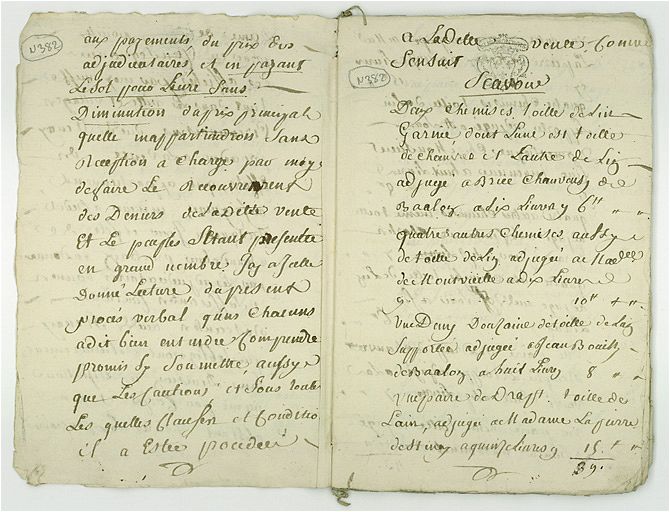 N382
aux payements du prix des
adjudicataires et en payant
Le sol pour Livre sans
Diminution du prix principal
qu'elle n'appartiendront sans
exception a Charge par moy
de faire Le Recouvrement
des Deniers de Laditte vente
Et Le peuple S'Etant presenté
en grand nombre Jay a Icelle
donné Lecture du present
procés verbal qu'un Chacun
a dit bien entendre Comprendre
promis Sy Soumettre aussy
que Les Cautions et Sous toutes
Les quelles Clauses et Conditio
il a Estee procedée
a Laditte vente Comme
Sensuit
Scavoir
N382
Deux Chemises toille de Lin
Garnie, dont Lune est toille
de chanvre et Lautre de Lin
adjugé a Brice Chauveusy de
Baalon a six Livres 6ʰ " "
quatre autres Chemises aussy
de toille de Lin adjugée a Mad
de Montvieille a dix Livres
10ʰ " "
Une Demy Douzaine de toille de Lin
supportée adjugée a Jean Bouilly
de Baalon a huit Livres 8 " "
Une paire de Drapt toille de
Lain adjugé a Madame La pierre
de Stenay a quinze Livres 15 " "
39